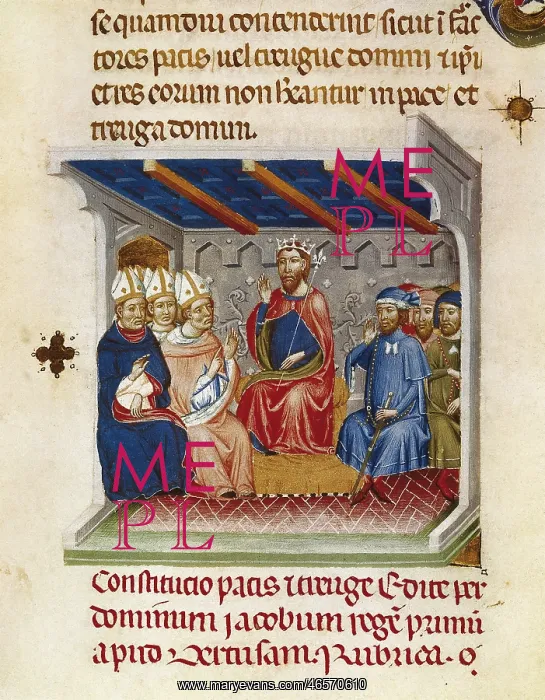 se quamdiu contenderint sicut i fac
tores pacis uel treugue domini τ ipi
et res eorum non habeantur in pace et
treuga domini.
ME
PL
ME
PL
Constitucio pacis τ treuge Edite per
dominum jacobum regē primū
apud Dertusam. Rubrica. 
www.maryevans.com/46570610